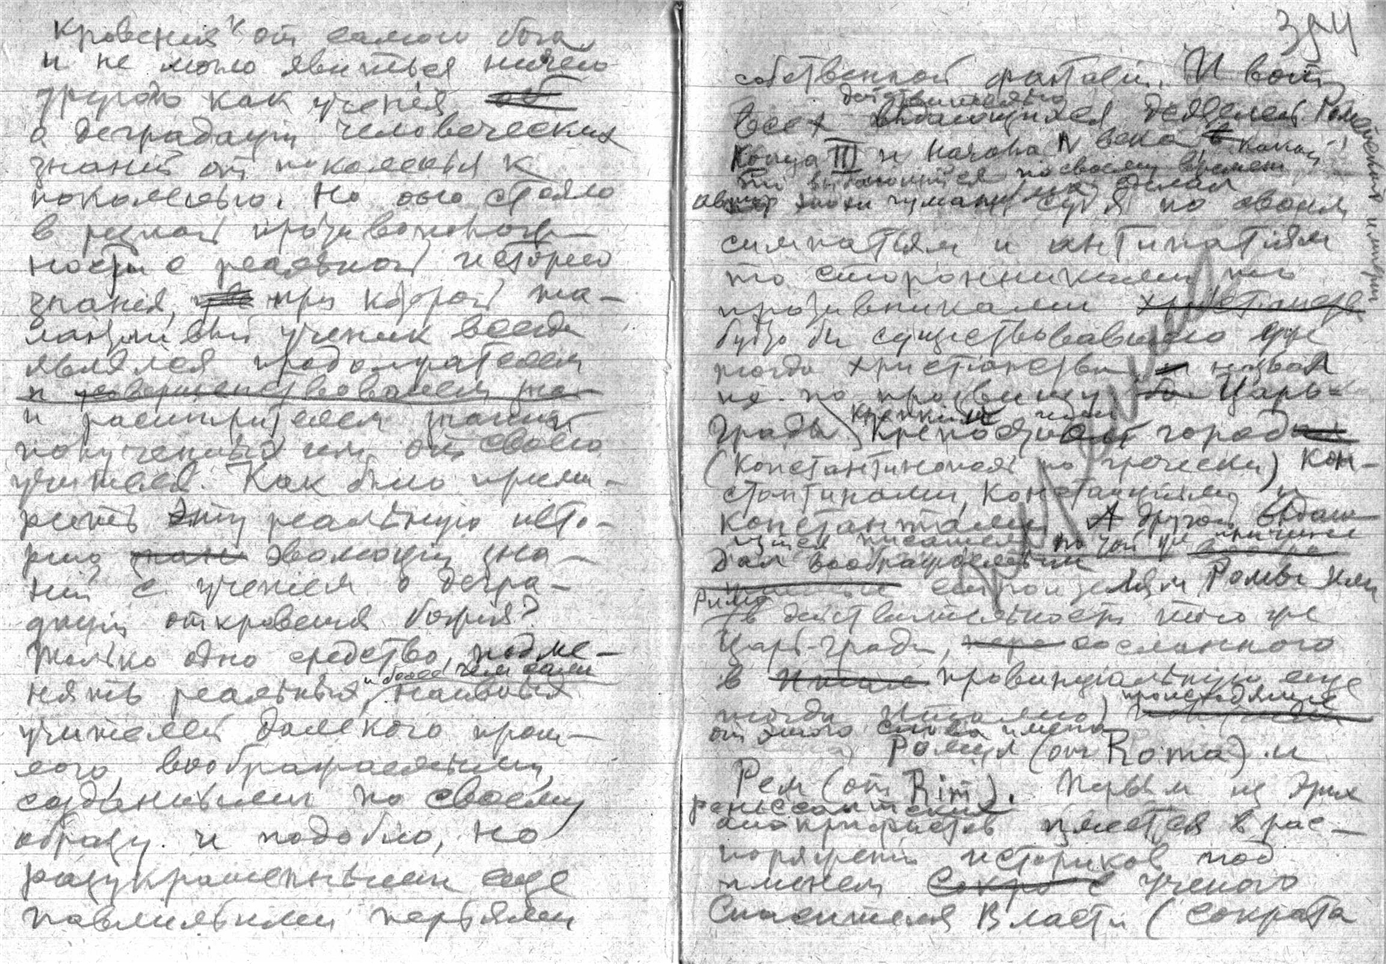 кровения от самого бога
и не могло явиться ничего
другого как учения
о деградации человеческих
знаний от поколенья к
поколенью. Но оно стояло
в резкой противоположно-
ности с реальной историей
знания, при которой та-
лантливый ученик всегда
являлся продолжателем
и усовершенствователем
и расширителем знаний
полученных им от своего
учителя. Как было прими-
рить эту реальную исто-
рию эволюции зна-
ний с ученьем о дегра-
дации откровения божия?
Только одно средство, подме-
и более чем сами
нять реальных, наивных
учителей далекого прош-
лого, воображаемыми,
созданными по своему
образу и подобию, но
разукрашенными еще
павлиньими перьями
394
собственной фантазии. И вот
действительно
всех выдающихся деятелей
конца III и начала IV века
выдающимся по своему времени
автор судя по своим
симпатиям и антипатиям
то сторонниками то
противниками христианства
будто бы существовавшего уже
тогда христианства и назвал
их по прозвищу Царь-
Града крепкий город
(Константинополя по гречески) Кон-
стантинами, Констанциями и
Константами. А другой
писатель по той же причине
дал воображаемым
Ромы или
Рима
в действительности того же
Царь-Града, сосланного
в провинциальную еще
тогда Италию, происходящие
от этого слова имена
Ромул (от Roma) и
Рем (от Rim). Первым из этих
ренессантских
апокрифистов является в рас-
поряжении историков под
именем ученого
Спасителя Власти (Сократа